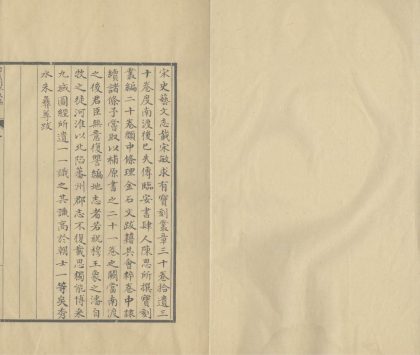 宋史藝文志載宋敏求有寶刻叢章三十卷拾遺三
十卷度南渡後已失傳臨安書肆人陳思所撰寶刻
叢編二十卷類中條理金石文跋藉其會粹卷中隸
續諸條予嘗取以補原書之二十一卷之闕當南渡
之後君臣無意復讐編地志者若祝穆王象之潘自
牧之徒河淮以北陷蕃州郡志不復載思獨能博采
九域圖經所遺一一識之其識高於朝士一等矣秀
水朱彝尊跋